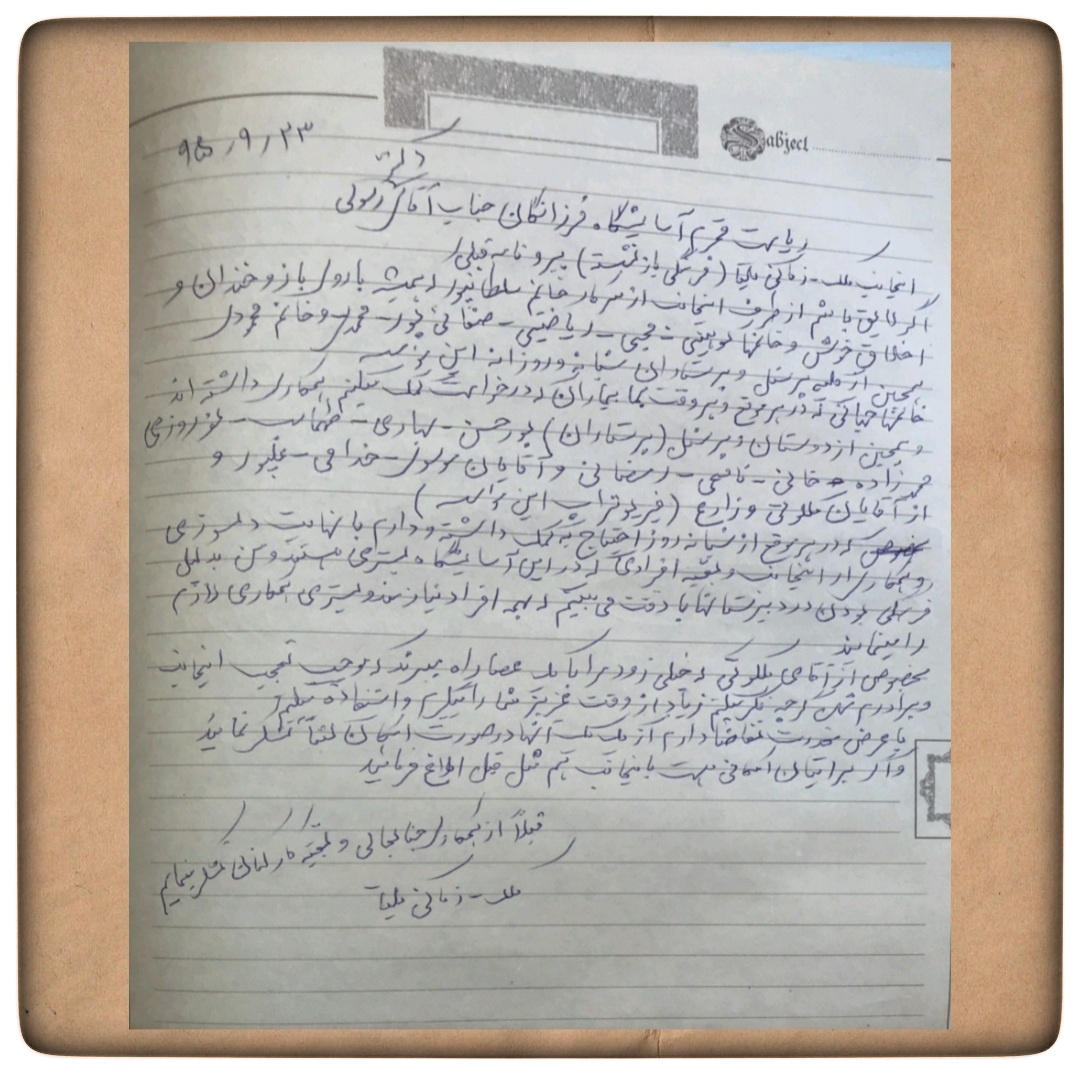 Sabject
۹۵/۹/۲۳
دکتر
ریاست محترم آسایشگاه فرزانگان جناب آقای رسولی
اینجانب ملک زمانی یکتا (فرهنگی بازنشسته) پیرو نامه قبلی
اگر لایق باشم از طرف اینجانب از سرکار خانم سلطانپور که همیشه با روی باز و خندان و
اخلاق خوش و خانمها محبی - ریاضتی - صفائی پور - محمدی و خانم
همچنین از کلیه پرسنل و پرستاران شبانه و روزانه این
خانمهائی که در هر موقع و هر وقت بما بیماران که درخواست کمک میکنیم همکاری داشته اند
و همچنین از دوستان و پرسنل (پرستاران) پورحسن - بهاری - طهماسب - نوروزی
محمدزاده خانی - قاسمی - رمضانی و آقایان خدامی - و
از آقایان ملکوتی و زارع (فیزیوتراپ این)
که در هر موقع از شبانه روز احتیاج به کمک داشته و دارم با نهایت دلسوزی
و همکاری از اینجانب و بقیه افرادی که در این آسایشگاه بستری هستند و من بدلیل
فرهنگی بودن در دبیرستانها با دقت می بینم که همه افراد نیازمند و بستری همکاری لازم
را مینمایند
بخصوص از آقای ملکوتی که خیلی زود مرا با یک عصا راه میبرند که موجب تعجب اینجانب
و برادرم شهر زیاد از وقت عزیز شما را بگیرم و استفاده میکنم
با عرض معذرت تقاضا دارم از یک یک آنها در صورت امکان کتباً تشکر نمائید
و اگر برایتان امکانی هست باینجانب هم مثل قبل اطلاع فرمائید
قبلاً از همکاری جنابعالی و بقیه کارکنان تشکر مینمایم
ملک زمانی یکتا